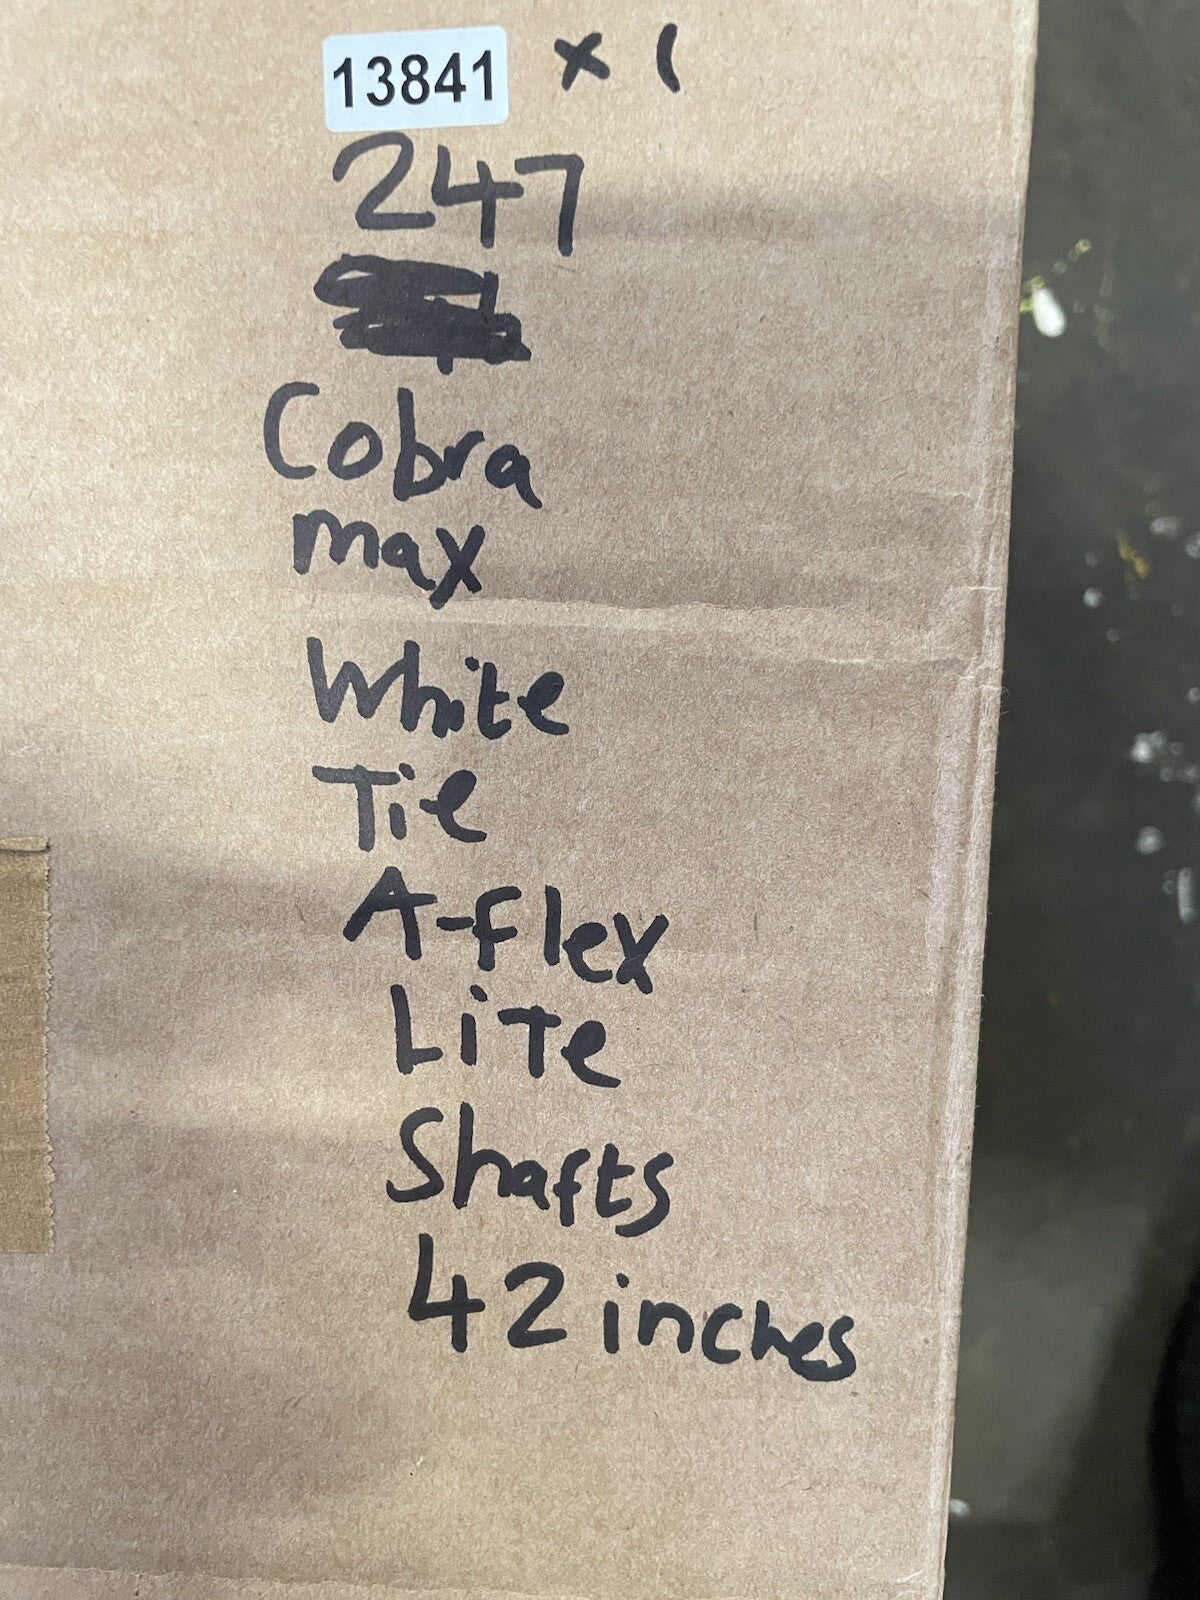 13841 x 1
247
Cobra
max
White
Tie
A-flex
LiTe
Shafts
42 inches